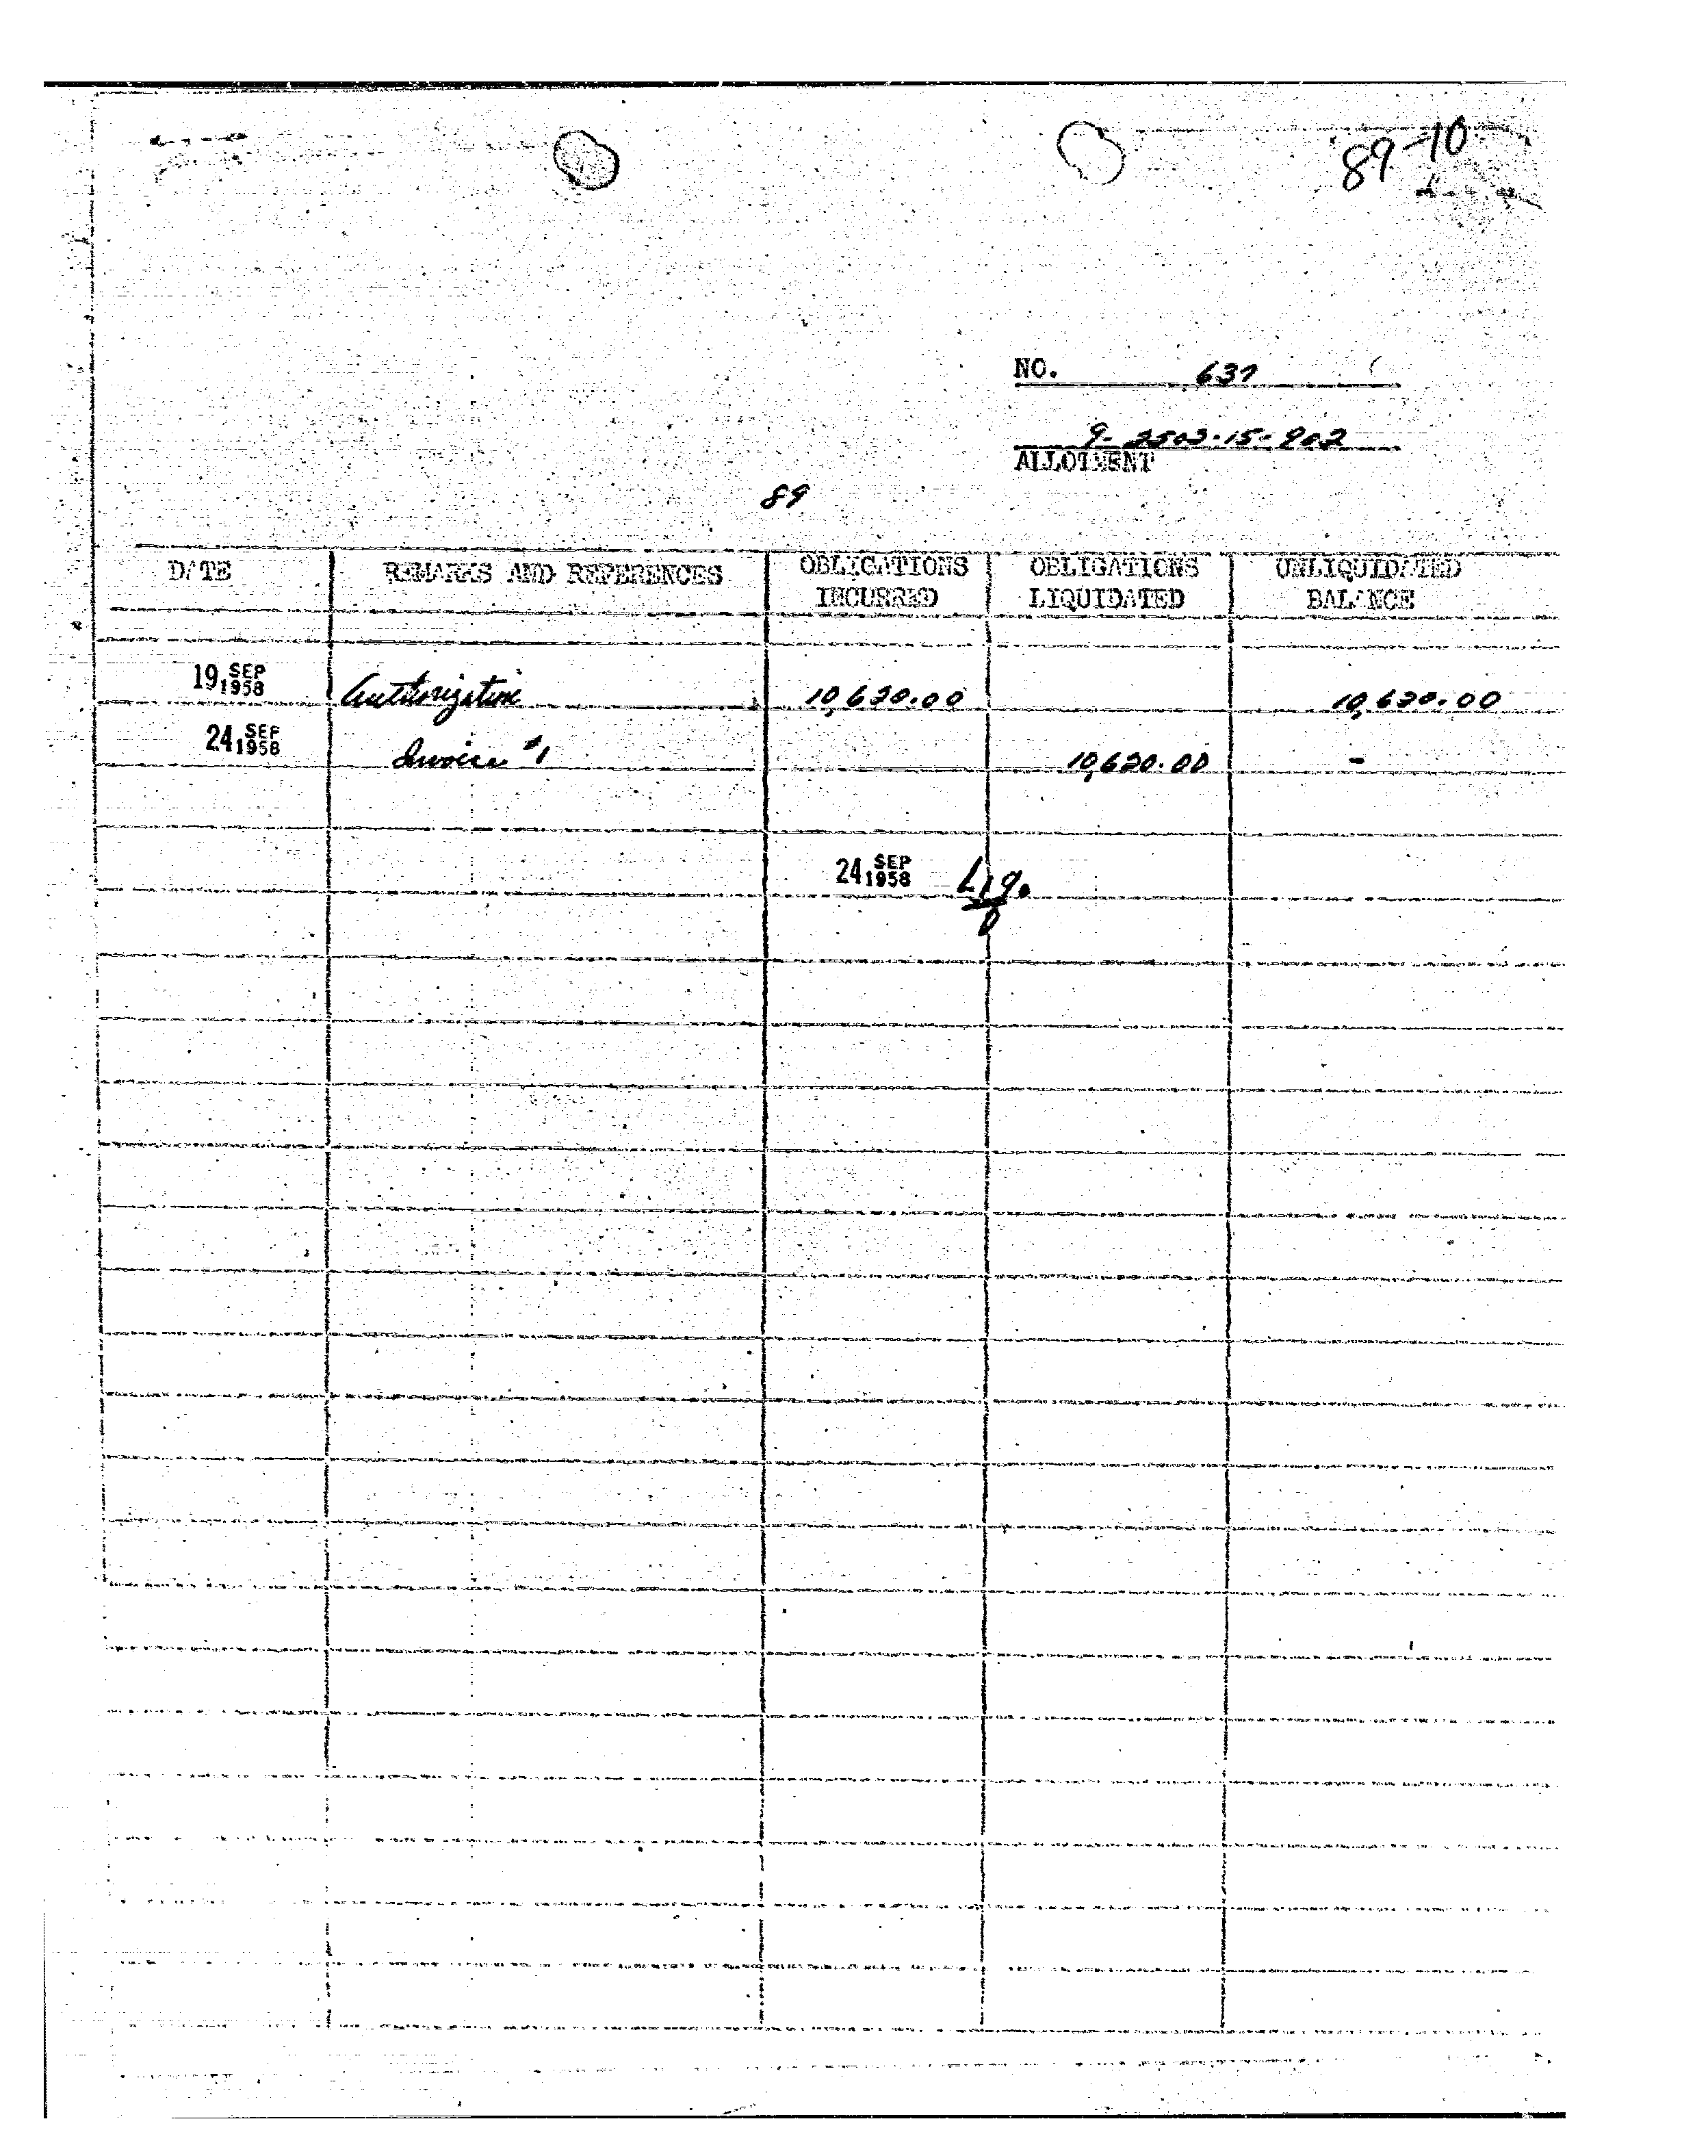 89-10
NO. 637
9-2502-15-902
ALLOTMENT
89
DATE REMARKS AND REFERENCES OBLIGATIONS INCURRED OBLIGATIONS LIQUIDATED UNLIQUIDATED BALANCE
19 SEP 1958 Authorization 10,620.00 10,620.00
24 SEP 1958 Invoice #1 10,620.00 -
24 SEP 1958 Liq.